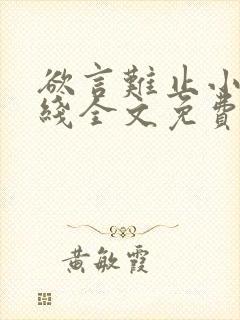 欲言難止小
綫全文免費
黃敏霞